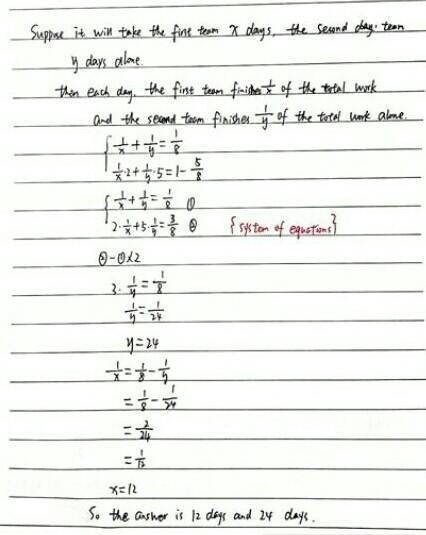 Suppose it will take the first team x days, the second day. team
y days alone.
then each day, the first team finishes 1/x of the total work
and the second team finishes 1/y of the total work alone.
{ 1/x + 1/y = 1/8
1/x·2 + 1/y·5 = 1 - 5/8
{ 1/x + 1/y = 1/8 ①
2·1/x + 5·1/y = 3/8 ② {system of equations}
② - ① × 2
3·1/y = 1/8
1/y = 1/24
y = 24
1/x = 1/8 - 1/y
= 1/8 - 1/24
= 2/24
= 1/12
x = 12
So the answer is 12 days and 24 days.